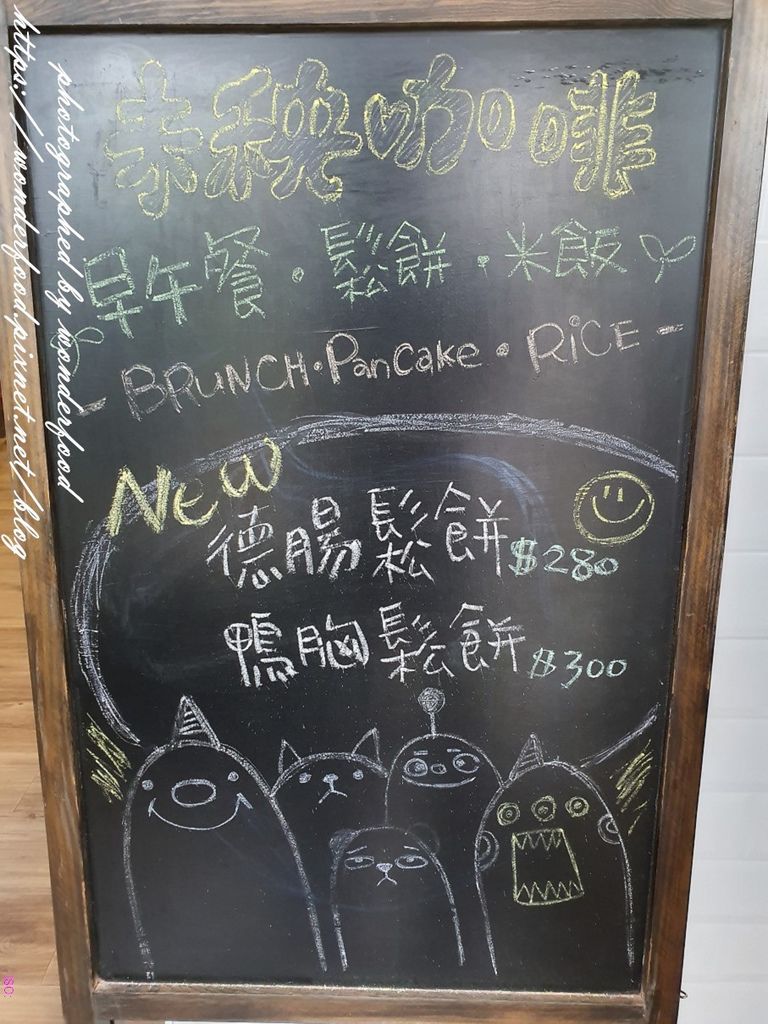 秧咖啡
早午餐·鬆餅·米飯
- BRUNCH·Pancake·RiCE -
New
德腸鬆餅$280
鴨胸鬆餅$300
photographed by wonderfood
https://wonderfood.pixnet.net/blog